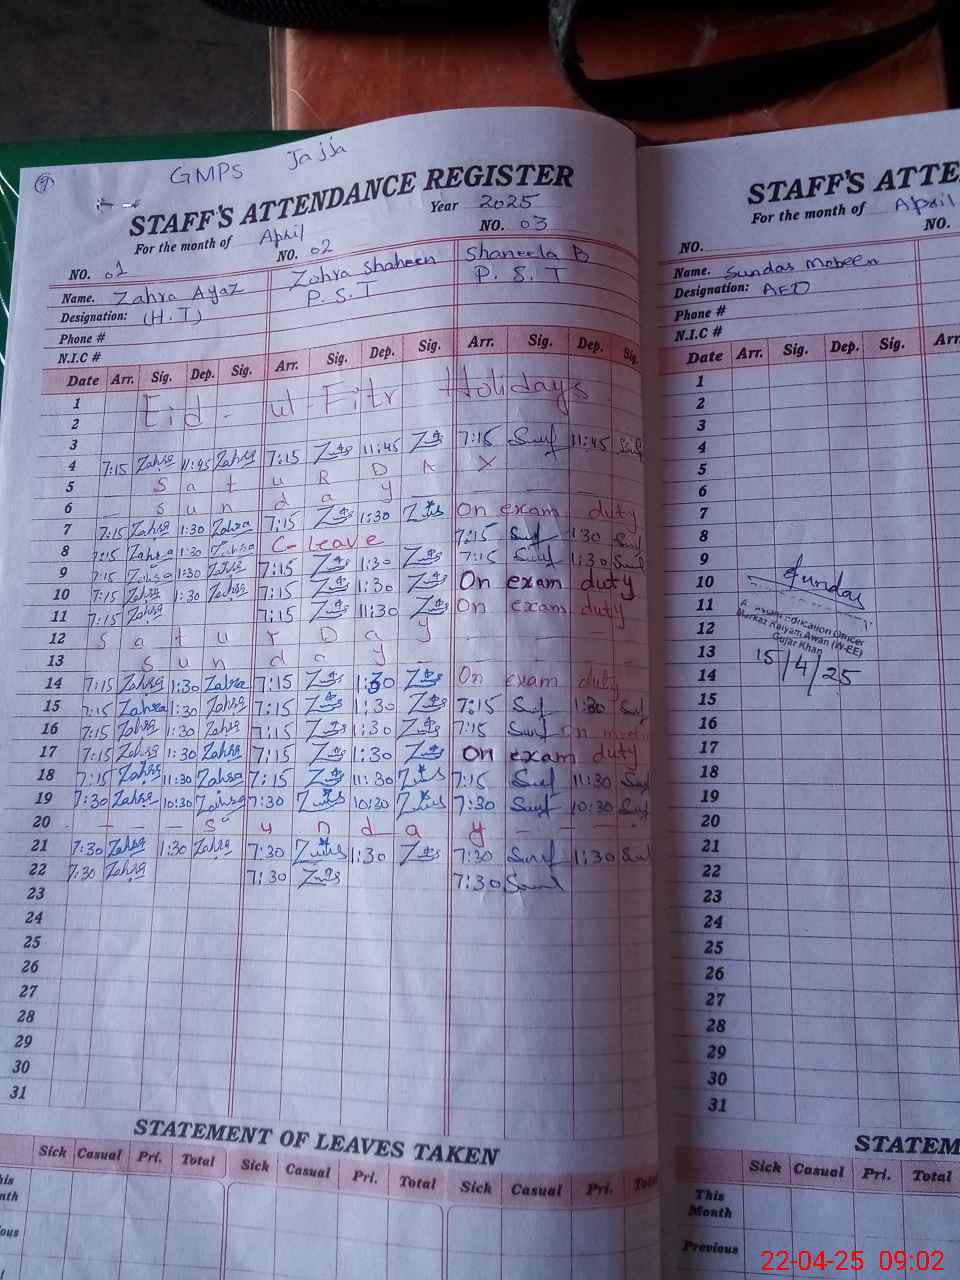 GMPS Jajja
STAFF'S ATTENDANCE REGISTER
For the month of April Year 2025
NO. 01 NO. 02 NO. 03
Name. Zahra Ayaz Zohra Shaheen Shaneela B
Designation: (H.T) P.S.T P.S.T
Phone #
N.I.C #
Date Arr. Sig. Dep. Sig. Arr. Sig. Dep. Sig. Arr. Sig. Dep. Sig.
1
2 Eid-ul-Fitr Holidays
3
4 7:15 Zahra 11:45 Zahra 7:15 11:45 7:15 11:45
5 S a t u R D A Y
6 S u n d a y
7 7:15 Zahra 1:30 Zahra 7:15 1:30 On exam duty
8 7:15 Zahra 1:30 Zahra C-leave 7:15 1:30
9 7:15 Zahra 1:30 Zahra 7:15 1:30 7:15 1:30
10 7:15 Zahra 1:30 Zahra 7:15 1:30 On exam duty
11 7:15 Zahra 7:15 11:30 On exam duty
12 S a t u r D a y
13 S u n d a y
14 7:15 Zahra 1:30 Zahra 7:15 1:30 On exam duty
15 7:15 Zahra 1:30 Zahra 7:15 1:30 7:15 1:30
16 7:15 Zahra 1:30 Zahra 7:15 1:30 7:15 on
17 7:15 Zahra 1:30 Zahra 7:15 1:30 On exam duty
18 7:15 Zahra 11:30 Zahra 7:15 11:30 7:15 11:30
19 7:30 Zahra 10:30 Zahra 7:30 10:30 7:30 10:30
20 S u n d a y
21 7:30 Zahra 1:30 Zahra 7:30 1:30 7:30 1:30
22 7:30 Zahra 7:30 7:30
23
24
25
26
27
28
29
30
31
STATEMENT OF LEAVES TAKEN
Sick Casual Pri. Total Sick Casual Pri. Total Sick Casual Pri. Total
STAFF'S ATTE
For the month of April
NO. NO.
Name. Sundas Mobeen
Designation: AEO
Phone #
N.I.C #
Date Arr. Sig. Dep. Sig. Arr.
1
2
3
4
5
6
7
8
9
10 Sundas
11
12 Markaz Qaiyam Awan (W-EE)
13 Gujar Khan
14 15/4/25
15
16
17
18
19
20
21
22
23
24
25
26
27
28
29
30
31
STATEM
Sick Casual Pri. Total
This
Month
Previous
22-04-25 09:02